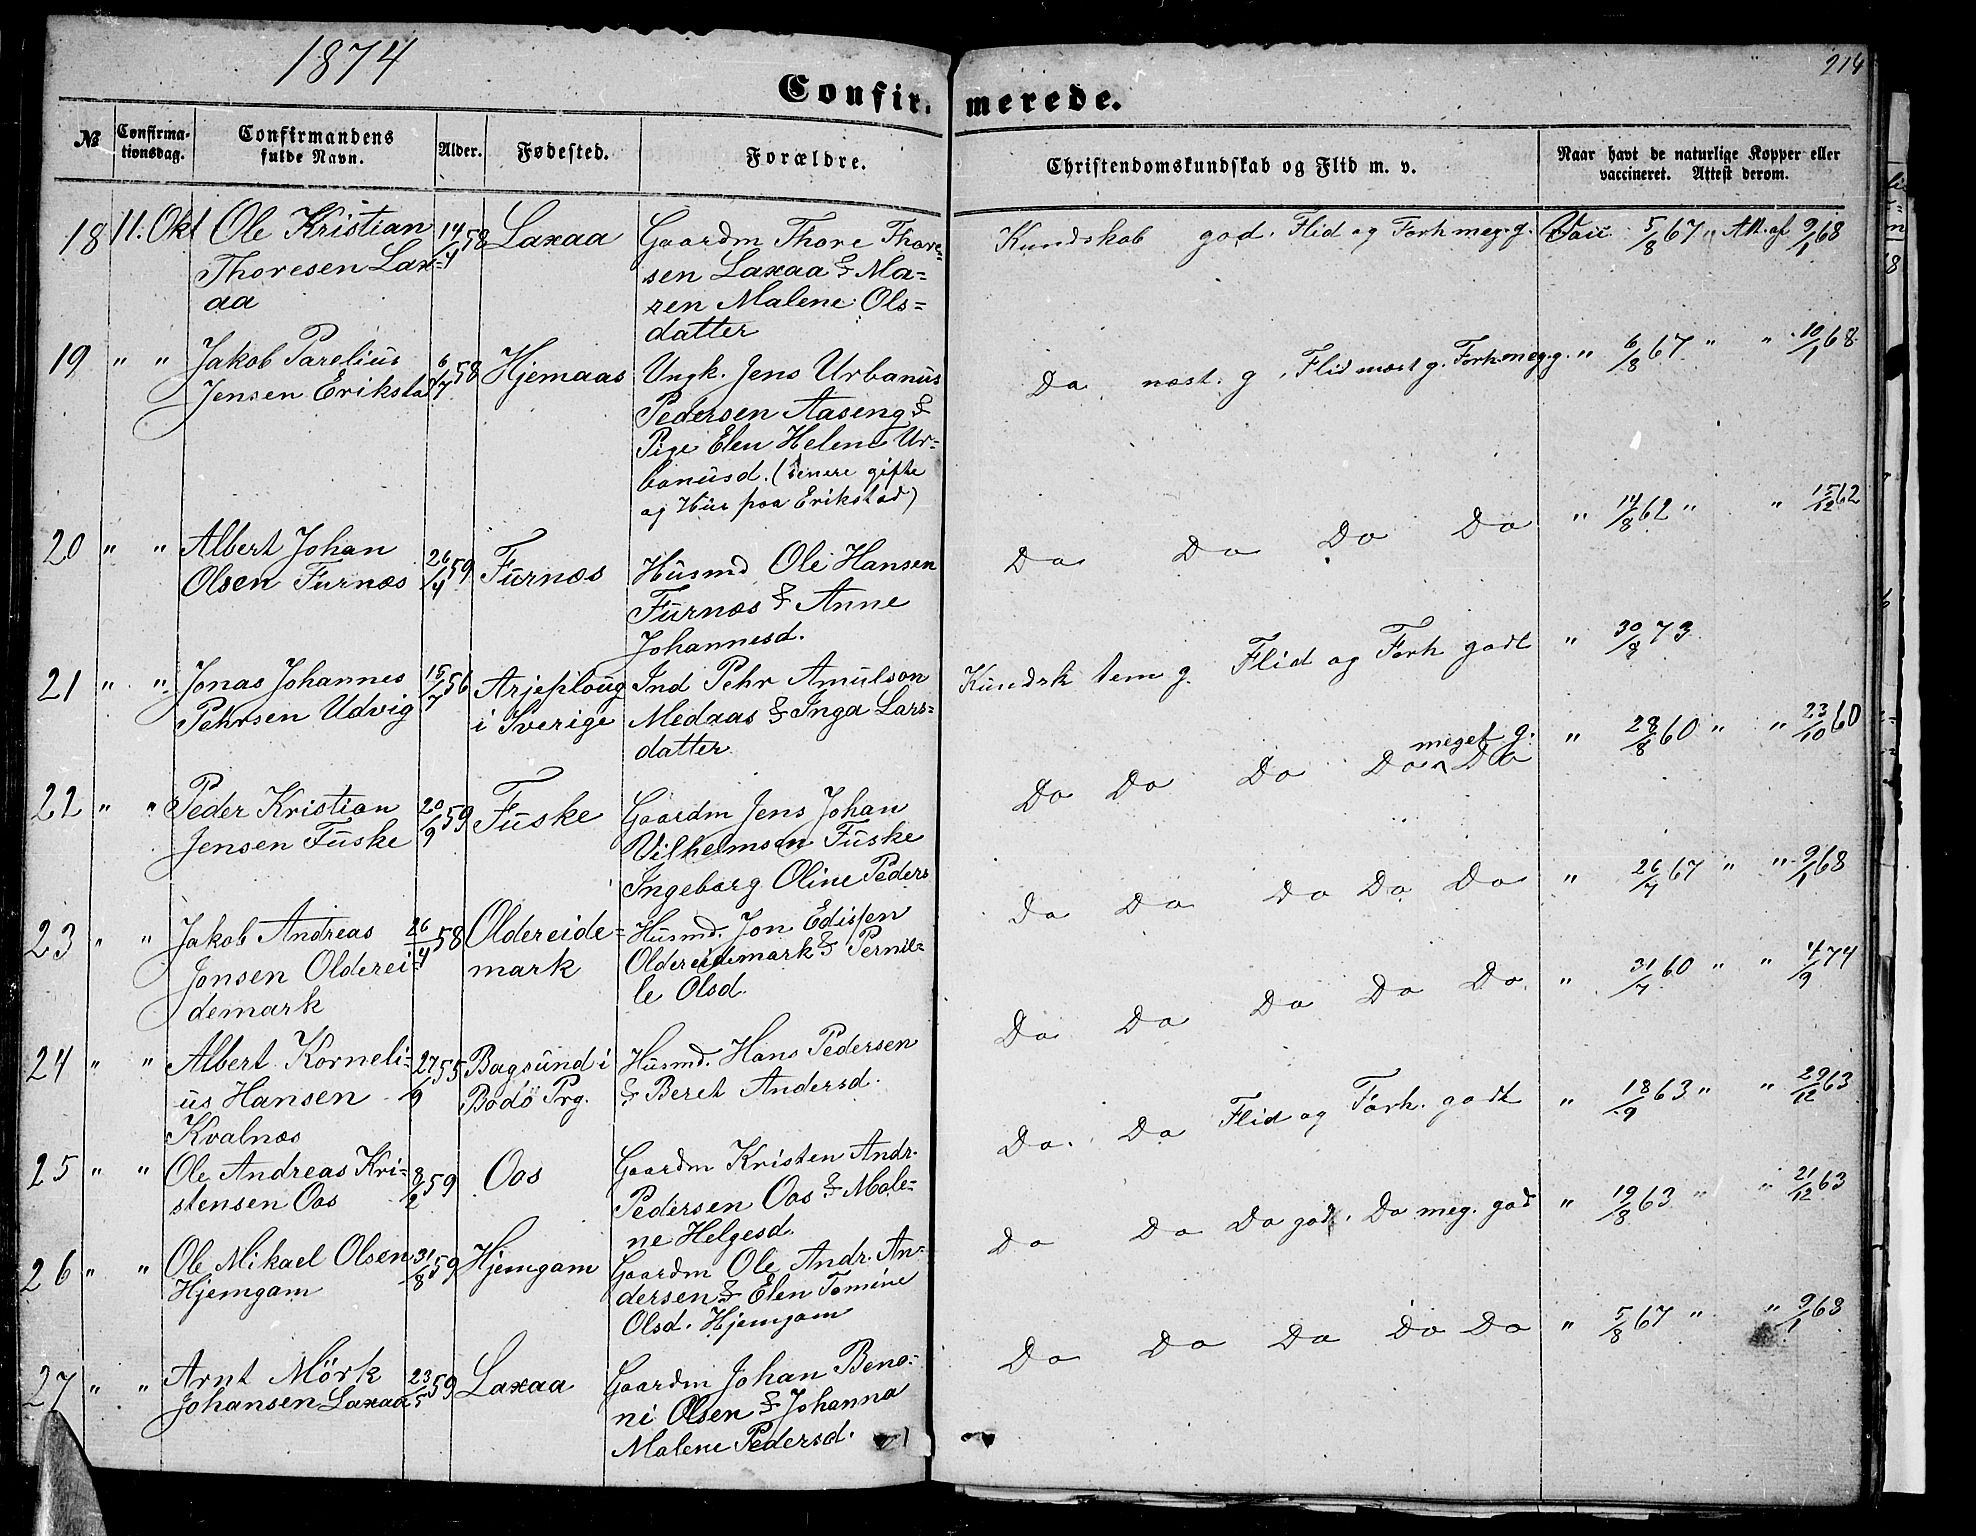 1874
214
Confir- merede.
№
Confirma-
tionsdag.
Confirmandens
fulde Navn.
Alder.
Fødested.
Forældre.
Christendomskundskab og Flid m. v.
Naar havt de naturlige Kopper eller
vaccineret. Attest derom.
18 11. Okt Ole Kristian 14/4 58 Laxaa Gaardm Thore Thore- Kundskab god. Flid og Forh meg. g. Vacc 5/8 67 " Att. af 9/1 68
Thoresen Lax- sen Laxaa & Ma-
aa ren Malene Ols-
datter
19 " " Jakob Parelius 6/7 58 Hjemaas Ungk. Jens Urbanus Do næst. g. Flid mæst g. Forh meg. g. " 6/8 67 " " 10/1 68
Jensen Erikstad Pedersen Aaseng &
Pige Elen Helene Ur-
banusd. (senere gifte
og Hus paa Erikstad)
20 " " Albert Johan 26/4 59 Furnæs Husmd Ole Hansen Do Do Do Do " 14/8 62 " " 15/12 62
Olsen Furnæs Furnæs & Anne
Johannesd.
21 " " Jonas Johannes 15/7 56 Arjeploug Ind Pehr Amulson Kundsk tem g. Flid og Forh godt " 30/8 73
Pehrsen Udvig i Sverige Medaas & Inga Lars-
datter
22 " " Peder Kristian 20/9 59 Fuske Gaardm Jens Johan Do Do Do Do meget g. Do " 28/8 60 " " 23/10 60
Jensen Fuske Vilhelmsen Fuske
Ingeborg Oline Peders
23 " " Jakob Andreas 26/4 58 Oldereide- Husmd. Jon Edissen Do Do Do Do Do " 26/7 67 " " 9/1 68
Jonsen Olderei- mark Oldereidemark & Pernil-
demark le Olsd.
24 " " Albert Korneli- 27/9 55 Bagsund i Husmd. Hans Pedersen Do Do Do Do Do " 31/7 60 " " 4/9 74
us Hansen Bodö Prg. & Beret Andersd.
Kvalnæs
25 " " Ole Andreas Kri- 8/2 59 Oos Gaardm Kristen Andr. Do Do Flid og Forh. godt " 18/9 63 " " 29/12 63
stensen Oos Pedersen Oos & Male-
ne Helgesd.
26 " " Ole Mikael Olsen 31/8 59 Hjemgam Gaardm Ole Andr. An- Do Do Do god. Do meg. god " 19/8 63 " " 21/12 63
Hjemgam dersen & Elen Tomine
Olsd. Hjemgam
27 " " Arnt Mörk 23/5 59 Laxaa Gaardm Johan Beno- Do Do Do Do Do " 5/8 67 " " 9/1 68
Johansen Laxaa ni Olsen & Johanna
Malene Pedersd.